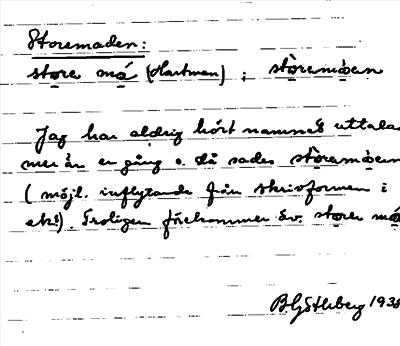 Storemaden:
store må (Hartman); storemåen
Jag har aldrig hört namnet uttalas
mer än en gång o. då sades storemåen
(möjl. inflytande från skrivformen i
ek!). Troligen förekommer äv. store må
B. Götlberg 1935